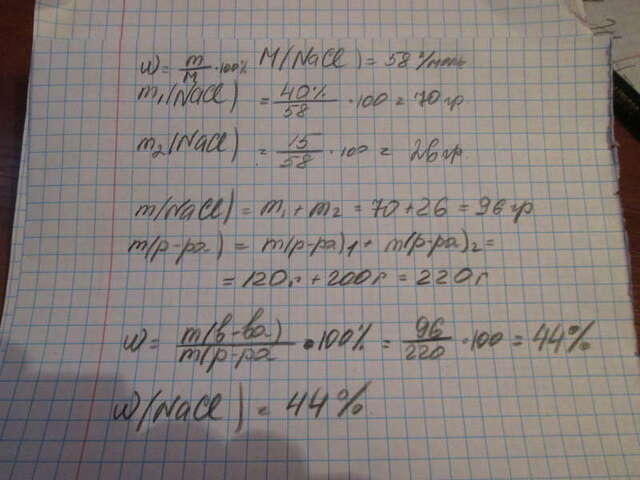 ω = m/M · 100% M(NaCl) = 58 г/моль
m₁(NaCl) = 40%/58 · 100 = 70 гр
m₂(NaCl) = 15/58 · 100 = 26 гр.
m(NaCl) = m₁ + m₂ = 70 + 26 = 96 гр
m(р-ра) = m(р-ра)₁ + m(р-ра)₂ =
= 120г + 200г = 220г
ω = m(в-ва)/m(р-ра · 100% = 96/220 · 100 = 44%
ω(NaCl) = 44%